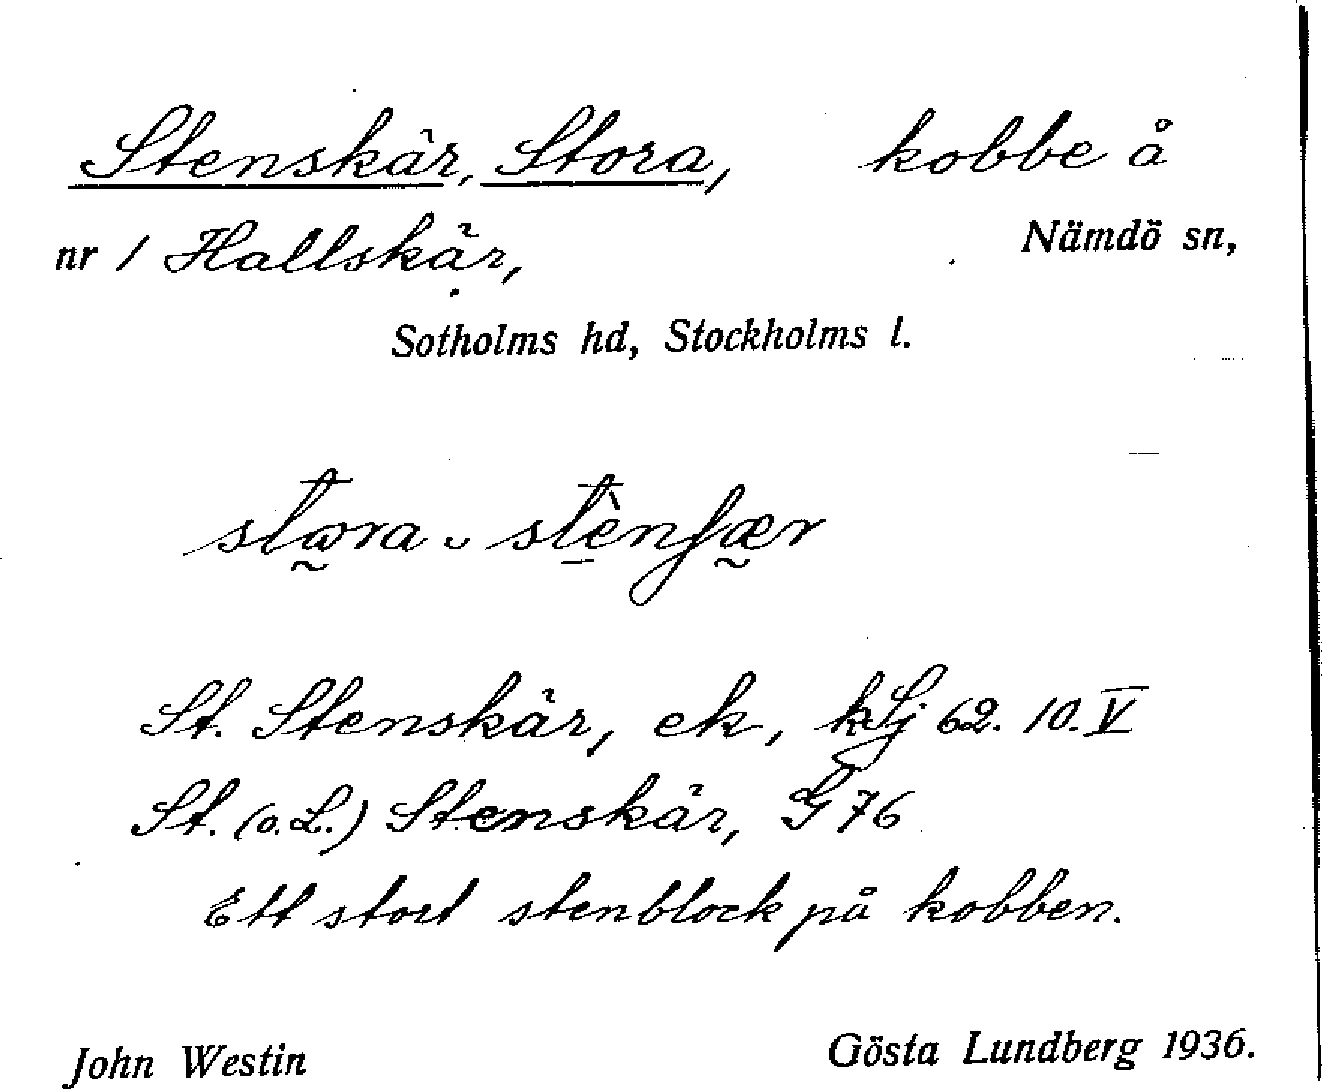 Stenskär, Stora, kobbe å
nr 1 Hallskär, Nämdö sn,
Sotholms hd, Stockholms l.
stora ᴗ stènʃær
St. Stenskär, ek, kLj 62. 10. V
St. (o. L.) Stenskär, G 76
Ett stort stenblock på kobben.
John Westin Gösta Lundberg 1936.